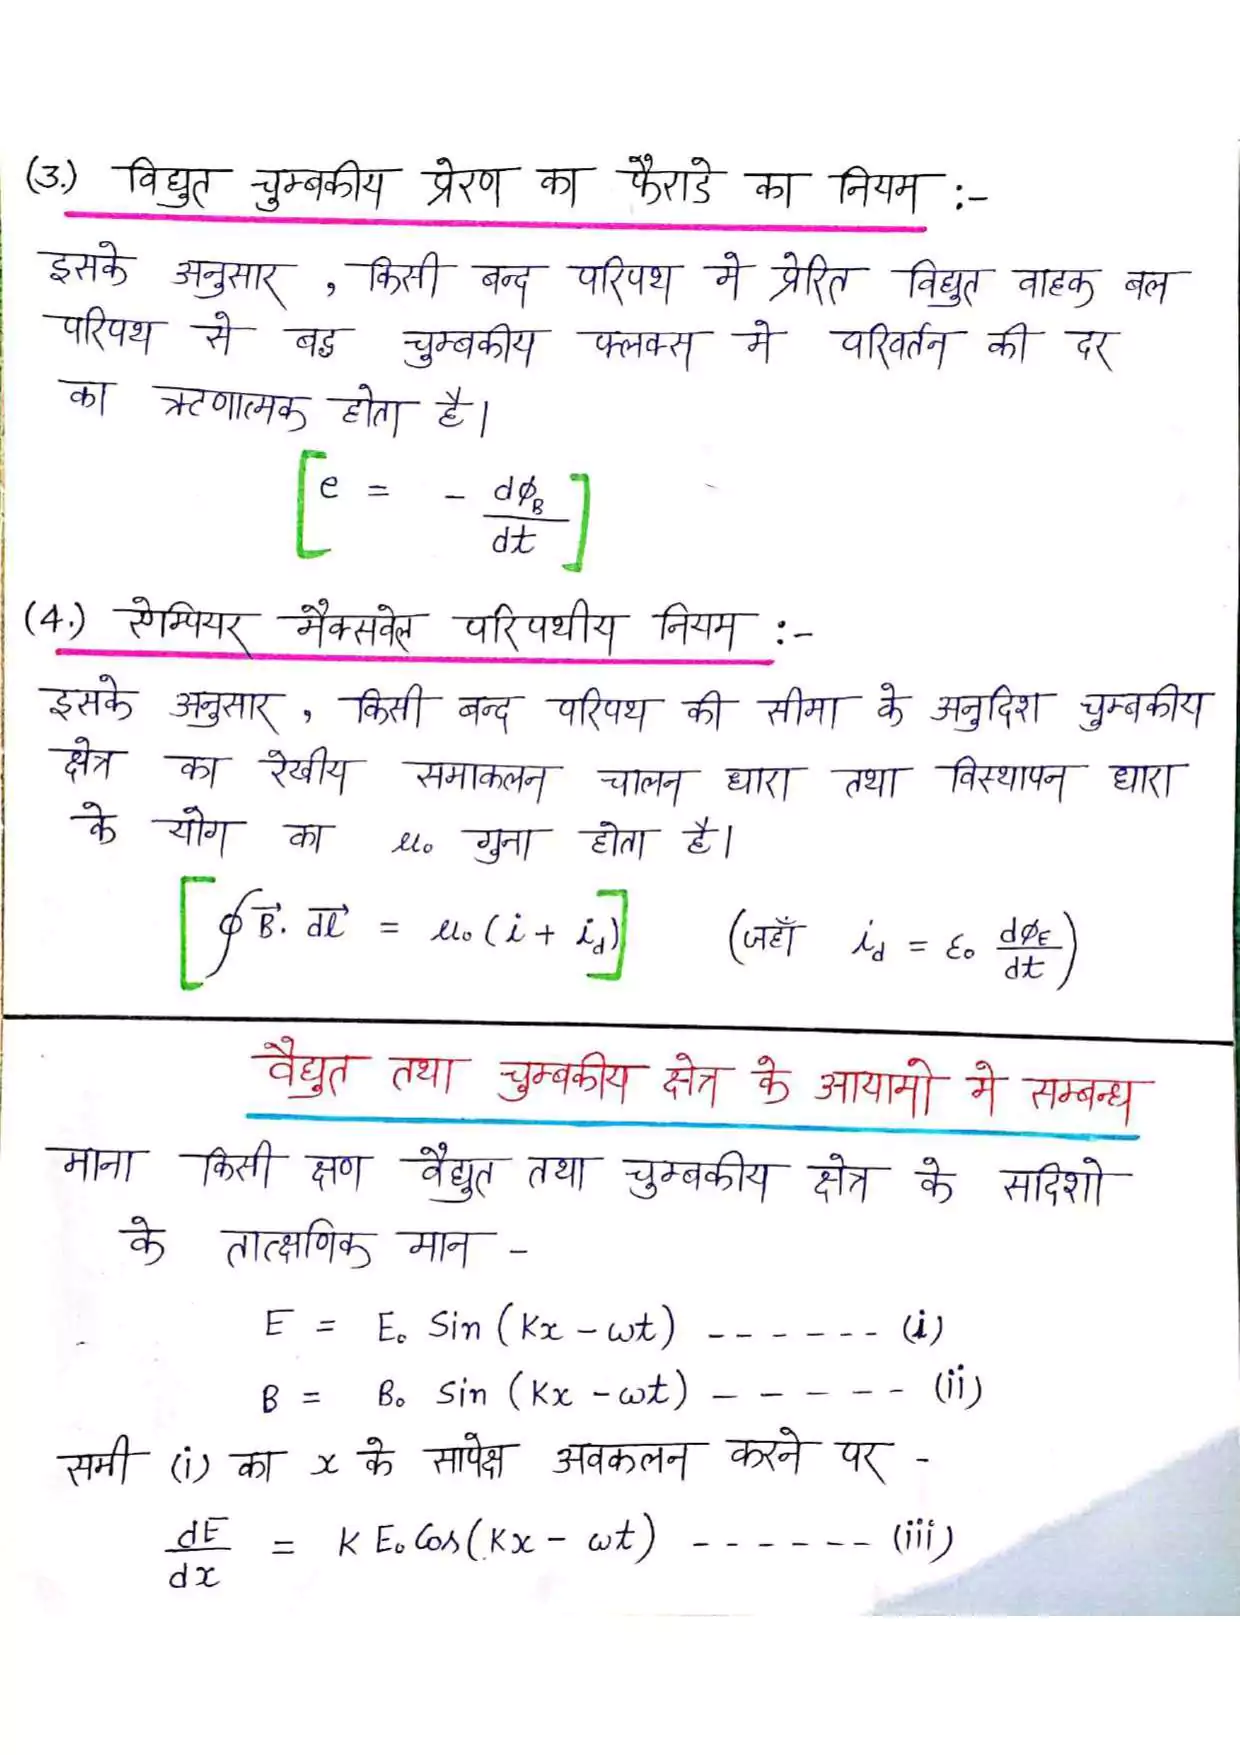 (3.) विद्युत चुम्बकीय प्रेरण का फैराडे का नियम :-
इसके अनुसार , किसी बन्द परिपथ मे प्रेरित विद्युत वाहक बल
परिपथ से बद्ध चुम्बकीय फ्लक्स मे परिवर्तन की दर
का ऋणात्मक होता है।
[e = - dϕ_B/dt]
(4.) ऐम्पियर मैक्सवेल परिपथीय नियम :-
इसके अनुसार , किसी बन्द परिपथ की सीमा के अनुदिश चुम्बकीय
क्षेत्र का रेखीय समाकलन चालन धारा तथा विस्थापन धारा
के योग का μ₀ गुना होता है।
[∮B⃗. dl⃗ = μ₀ (i + i_d)] (जहाँ i_d = ε₀ dϕ_E/dt)
वैद्युत तथा चुम्बकीय क्षेत्र के आयामो मे सम्बन्ध
माना किसी क्षण वैद्युत तथा चुम्बकीय क्षेत्र के सदिशो
के तात्क्षणिक मान -
E = E₀ Sin (Kx - ωt) ------ (i)
B = B₀ Sin (Kx - ωt) ------ (ii)
समी (i) का x के सापेक्ष अवकलन करने पर -
dE/dx = K E₀ Cos (Kx - ωt) ------ (iii)